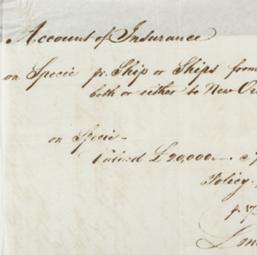 Account of Insurance
on Specie pr. Ship or Ships from
both or either to New Or
on Specie
Valued £20,000
Policy